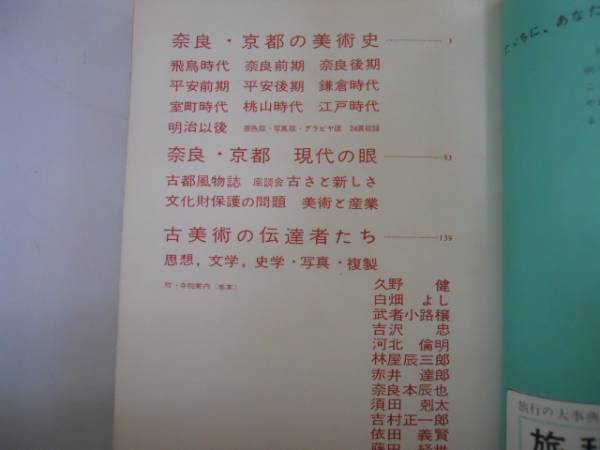 奈良・京都の美術史 3
飛鳥時代 奈良前期 奈良後期
平安前期 平安後期 鎌倉時代
室町時代 桃山時代 江戸時代
明治以後 原色版・写真版・グラビヤ版 24頁収録
奈良・京都 現代の眼 93
古都風物誌 座談会 古さと新しさ
文化財保護の問題 美術と産業
古美術の伝達者たち 139
思想，文学，史学・写真・複製
付・寺院案内（巻末）
久野 健
白畑 よし
武者小路穣
吉沢 忠
河北 倫明
林屋辰三郎
赤井 達郎
奈良本辰也
須田 剋太
吉村正一郎
依田 義賢
旅行の大事典